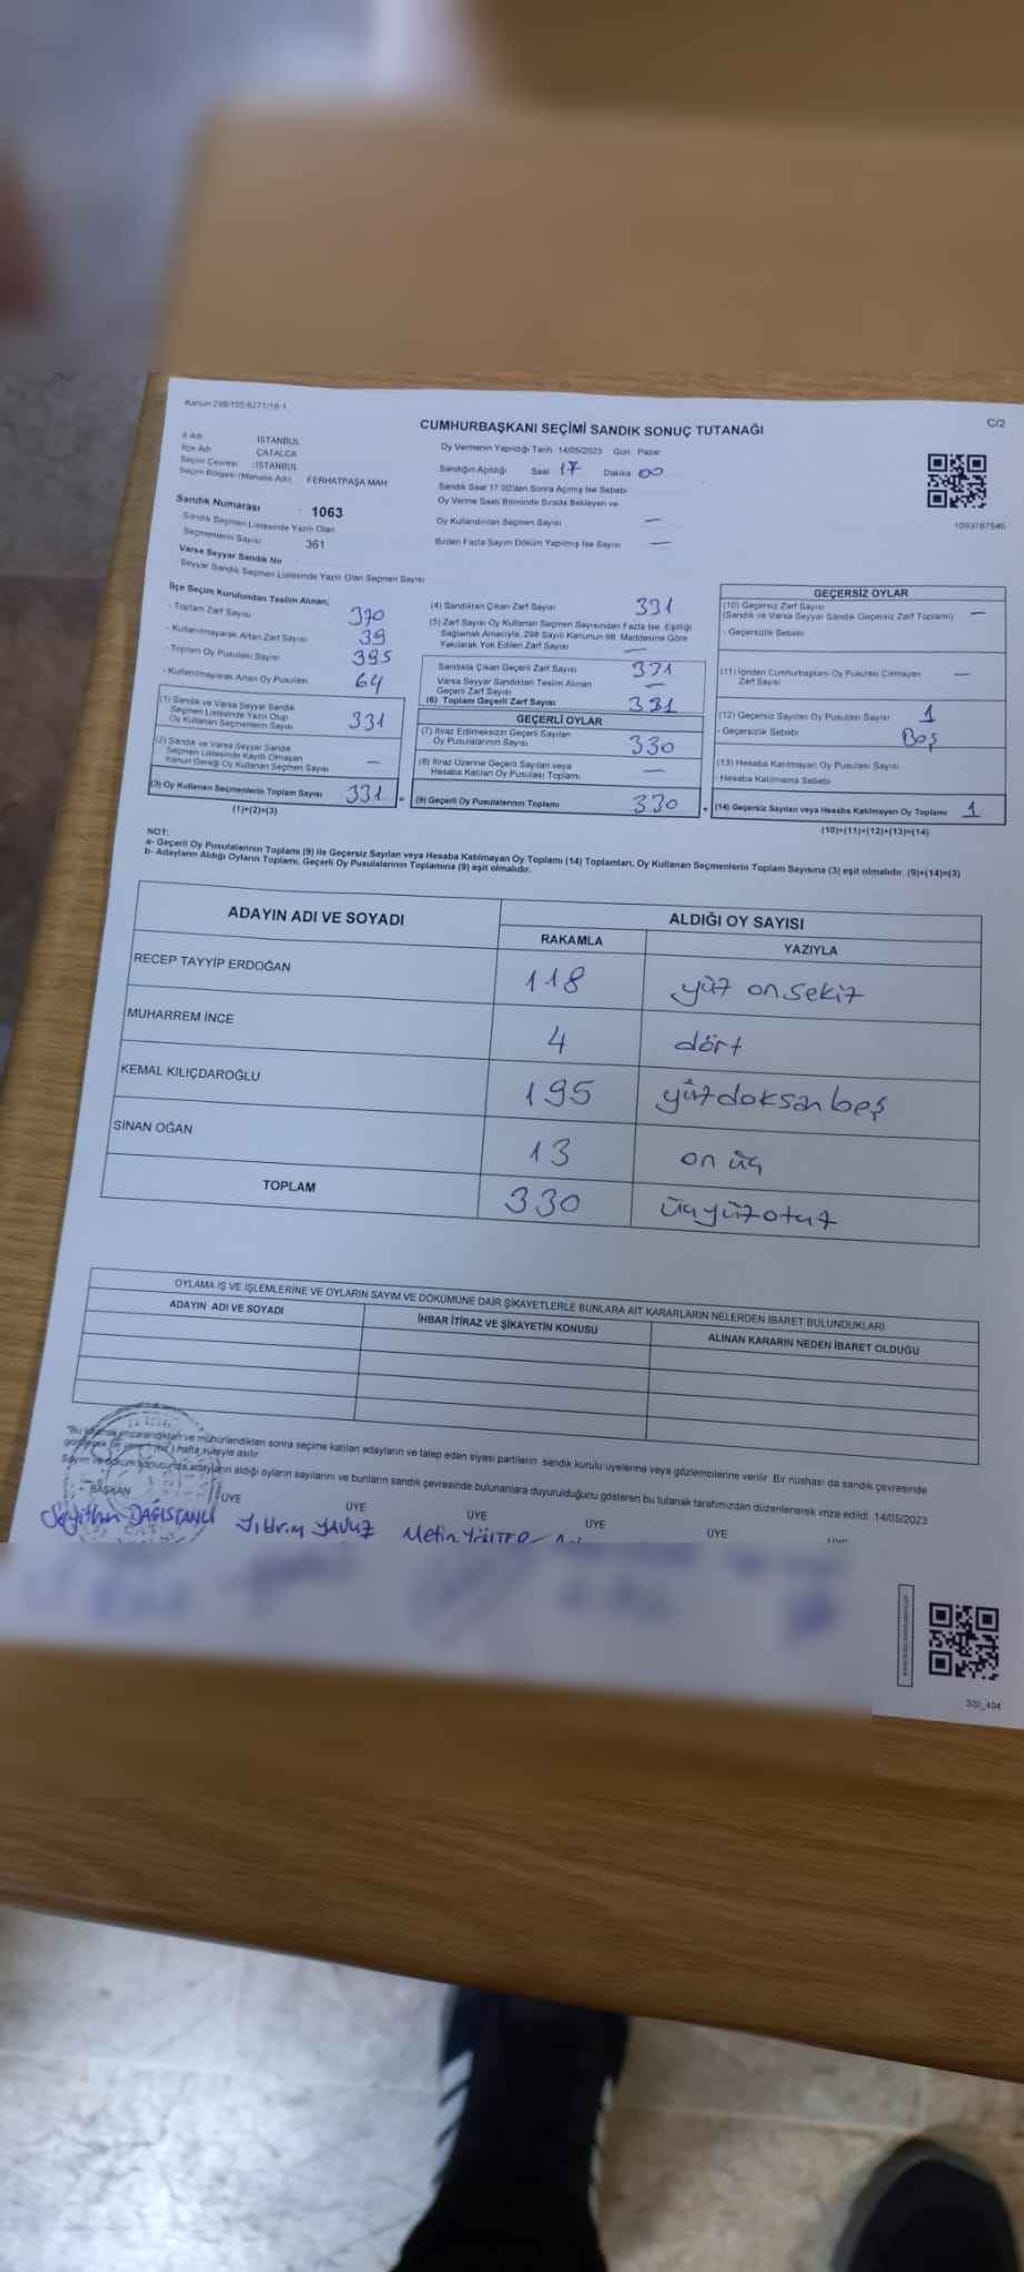 Kanun 298/105-6271/16-1
C/2
CUMHURBAŞKANI SEÇİMİ SANDIK SONUÇ TUTANAĞI
İl Adı İSTANBUL
İlçe Adı ÇATALCA
Seçim Çevresi :İSTANBUL
Seçim Bölgesi (Mahalle Adı) FERHATPAŞA MAH
Sandık Numarası 1063
Sandık Seçmen Listesinde Yazılı Olan
Seçmenlerin Sayısı 361
Varsa Seyyar Sandık No
Seyyar Sandık Seçmen Listesinde Yazılı Olan Seçmen Sayısı
Oy Vermenin Yapıldığı Tarih 14/05/2023 Gün Pazar
Sandığın Açıldığı Saat 17 Dakika 00
Sandık Saat 17:00'den Sonra Açılmış İse Sebebi
Oy Verme Saati Bitiminde Sırada Bekleyen ve
Oy Kullandırılan Seçmen Sayısı —
Birden Fazla Sayım Döküm Yapılmış İse Sayısı —
1093787545
İlçe Seçim Kurulundan Teslim Alınan;
- Toplam Zarf Sayısı 370
- Kullanılmayarak Artan Zarf Sayısı 39
- Toplam Oy Pusulası Sayısı 395
- Kullanılmayarak Artan Oy Pusulası 64
(1) Sandık ve Varsa Seyyar Sandık
Seçmen Listesinde Yazılı Olup
Oy Kullanan Seçmenlerin Sayısı 331
(2) Sandık ve Varsa Seyyar Sandık
Seçmen Listesinde Kayıtlı Olmayan
Kanun Gereği Oy Kullanan Seçmen Sayısı —
(3) Oy Kullanan Seçmenlerin Toplam Sayısı 331 =
(1)+(2)=(3)
(4) Sandıktan Çıkan Zarf Sayısı 331
(5) Zarf Sayısı Oy Kullanan Seçmen Sayısından Fazla İse, Eşitliği
Sağlamak Amacıyla, 298 Sayılı Kanunun 98. Maddesine Göre
Yakılarak Yok Edilen Zarf Sayısı —
Sandıkta Çıkan Geçerli Zarf Sayısı 331
Varsa Seyyar Sandıktan Teslim Alınan
Geçerli Zarf Sayısı —
(6) Toplam Geçerli Zarf Sayısı 331
GEÇERLİ OYLAR
(7) İtiraz Edilmeksizin Geçerli Sayılan
Oy Pusulalarının Sayısı 330
(8) İtiraz Üzerine Geçerli Sayılan veya
Hesaba Katılan Oy Pusulası Toplamı —
(9) Geçerli Oy Pusulalarının Toplamı 330 +
GEÇERSİZ OYLAR
(10) Geçersiz Zarf Sayısı
(Sandık ve Varsa Seyyar Sandık Geçersiz Zarf Toplamı) —
- Geçersizlik Sebebi
(11) İçinden Cumhurbaşkanı Oy Pusulası Çıkmayan
Zarf Sayısı —
(12) Geçersiz Sayılan Oy Pusulası Sayısı 1
- Geçersizlik Sebebi Boş
(13) Hesaba Katılmayan Oy Pusulası Sayısı
- Hesaba Katılmama Sebebi
(14) Geçersiz Sayılan veya Hesaba Katılmayan Oy Toplamı 1
(10)+(11)+(12)+(13)=(14)
NOT:
a- Geçerli Oy Pusulalarının Toplamı (9) ile Geçersiz Sayılan veya Hesaba Katılmayan Oy Toplamı (14) Toplamları, Oy Kullanan Seçmenlerin Toplam Sayısına (3) eşit olmalıdır. (9)+(14)=(3)
b- Adayların Aldığı Oyların Toplamı, Geçerli Oy Pusulalarının Toplamına (9) eşit olmalıdır.
ADAYIN ADI VE SOYADI ALDIĞI OY SAYISI
RAKAMLA YAZIYLA
RECEP TAYYİP ERDOĞAN 118 yüz onsekiz
MUHARREM İNCE 4 dört
KEMAL KILIÇDAROĞLU 195 yüzdoksanbeş
SİNAN OĞAN 13 on üç
TOPLAM 330 üçyüzotuz
OYLAMA İŞ VE İŞLEMLERİNE VE OYLARIN SAYIM VE DÖKÜMÜNE DAİR ŞİKAYETLERLE BUNLARA AİT KARARLARIN NELERDEN İBARET BULUNDUKLARI
ADAYIN ADI VE SOYADI İHBAR İTİRAZ VE ŞİKAYETİN KONUSU ALINAN KARARIN NEDEN İBARET OLDUĞU
"Bu ve mühürlendikten sonra seçime katılan adayların ve talep eden siyasi partilerin sandık kurulu üyelerine veya gözlemcilerine verilir. Bir nüshası da sandık çevresinde
hafta süreyle asılır.
Sayım ve döküm sonucunda adayların aldığı oyların sayılarını ve bunların sandık çevresinde bulunanlara duyurulduğunu gösteren bu tutanak tarafımızdan düzenlenerek imza edildi. 14/05/2023
BAŞKAN ÜYE ÜYE ÜYE ÜYE ÜYE
Seyithan DAĞISTANLI Yıldırım YAVUZ Metin
SSI_404